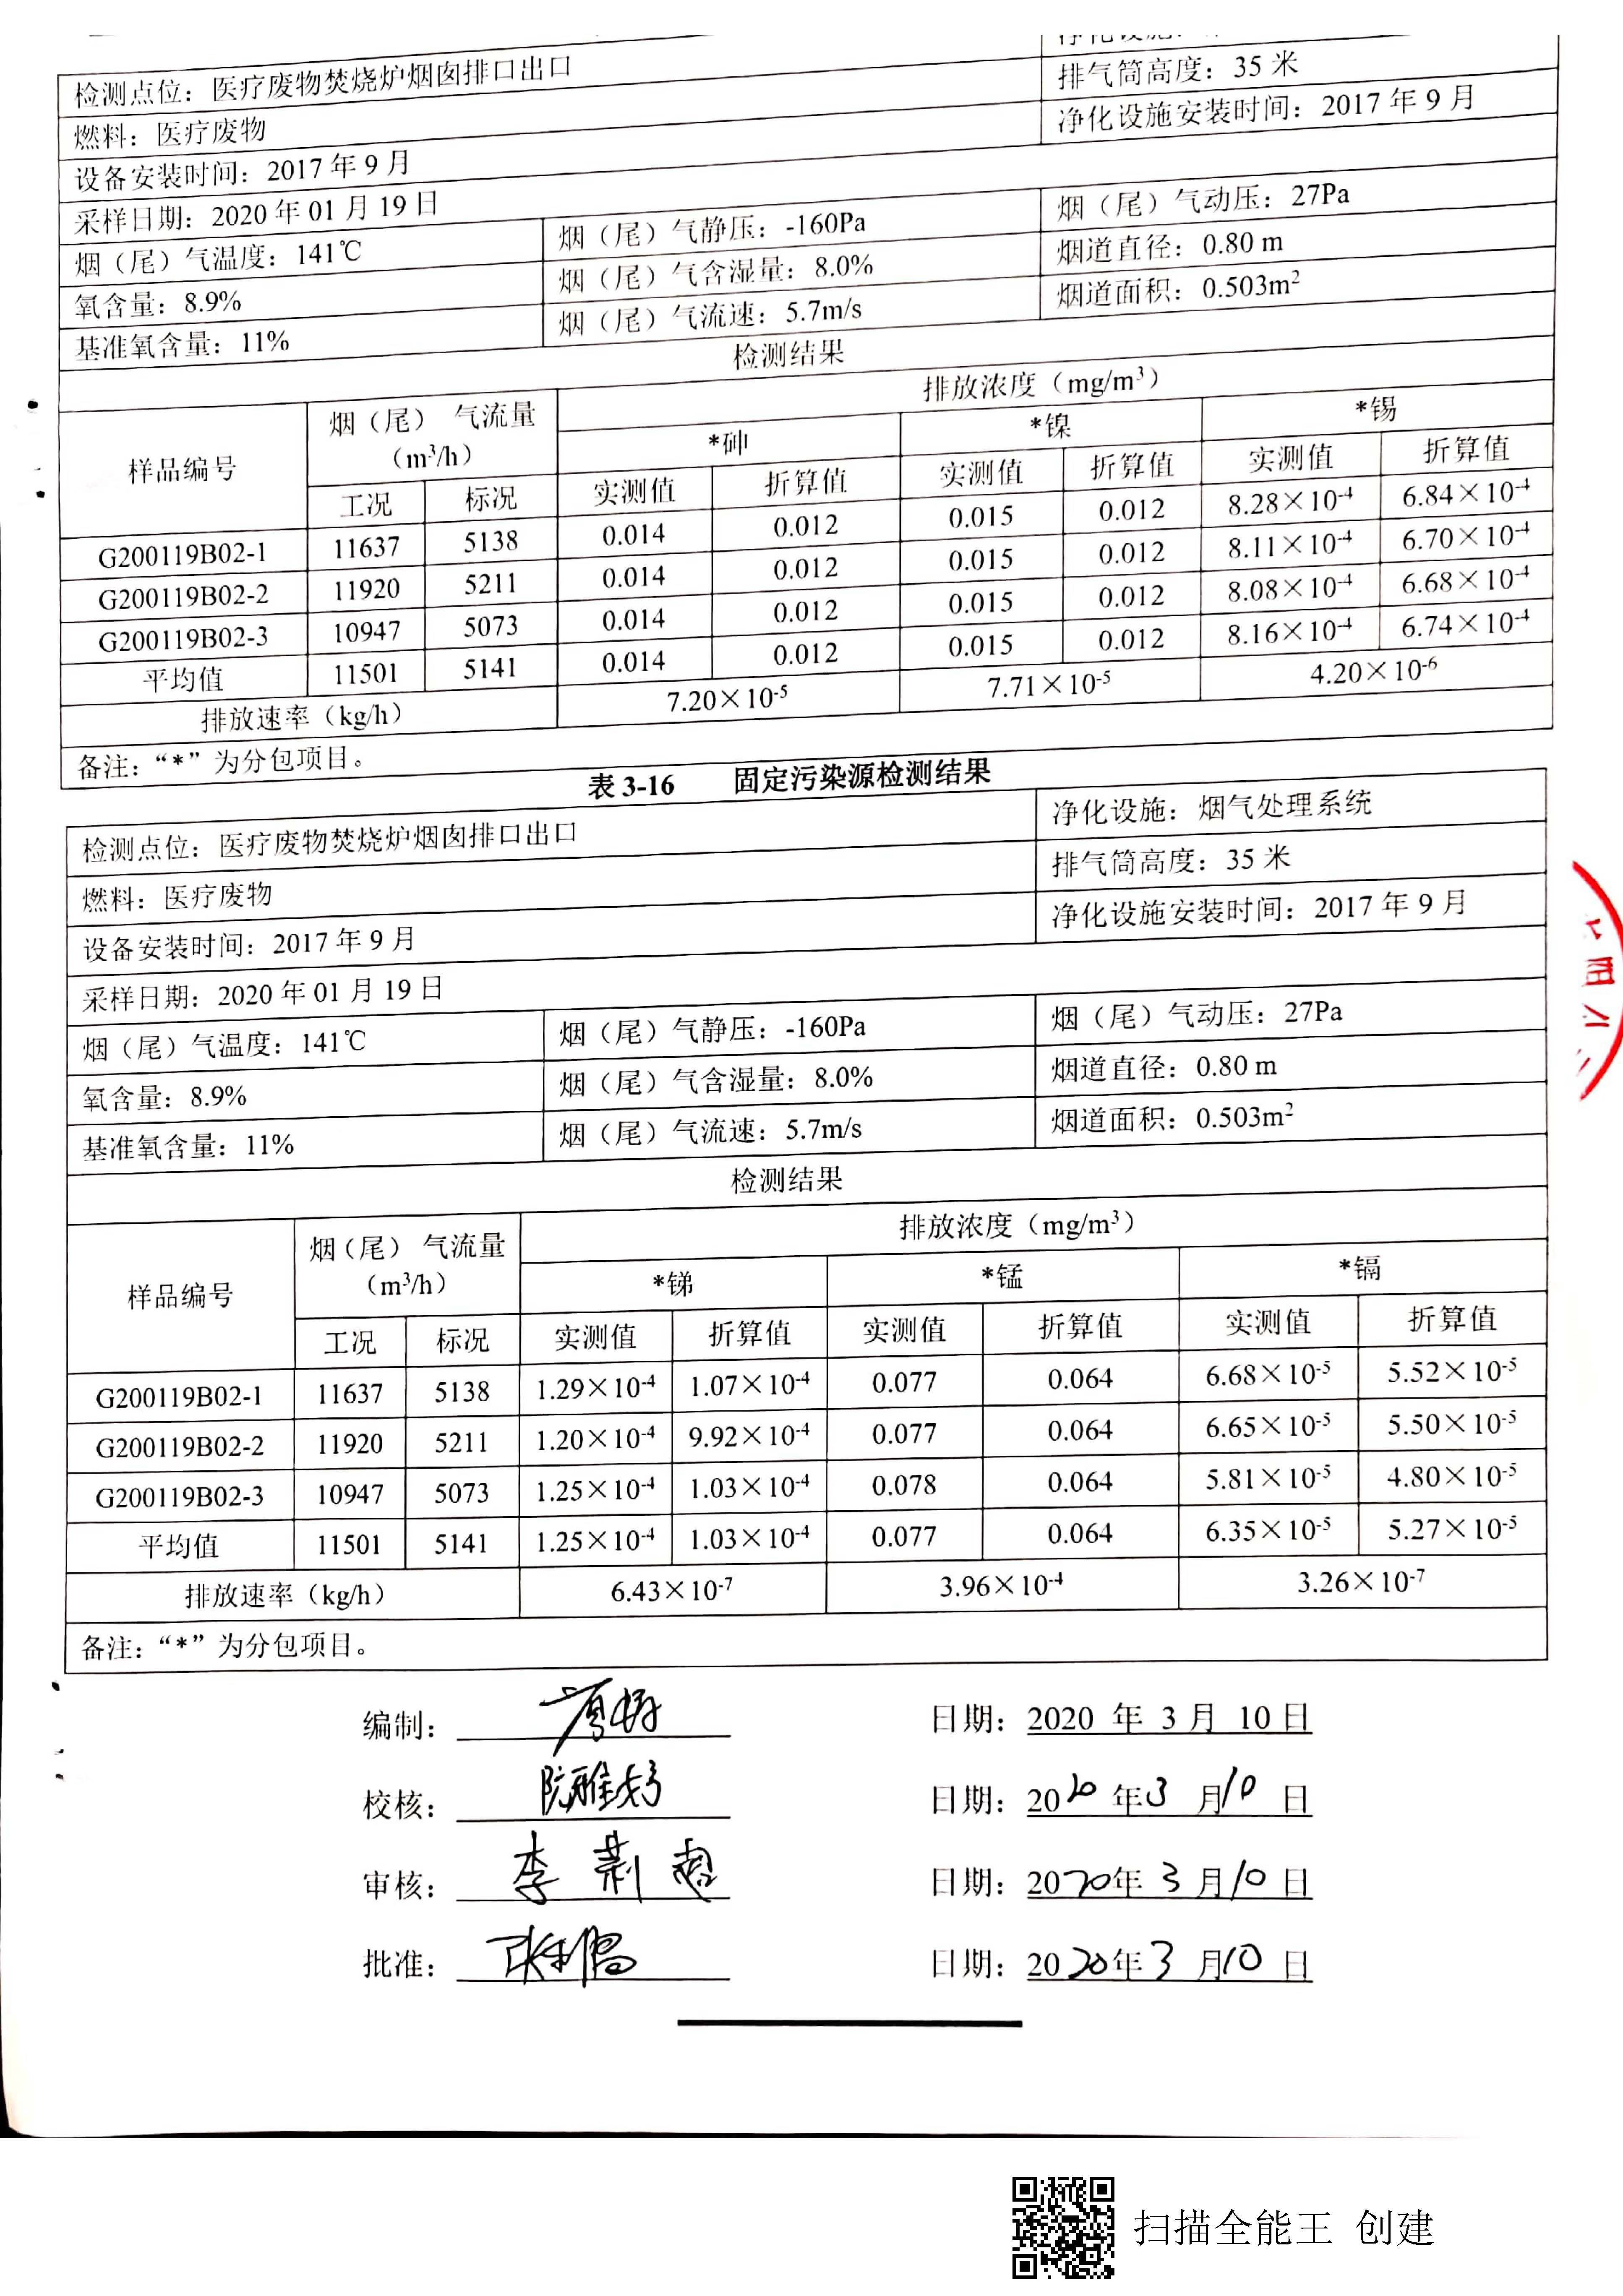 检测点位：医疗废物焚烧炉烟囱排口出口
燃料：医疗废物 排气筒高度：35 米
设备安装时间：2017 年 9 月 净化设施安装时间：2017 年 9 月
采样日期：2020 年 01 月 19 日
烟（尾）气温度：141℃ 烟（尾）气静压：-160Pa 烟（尾）气动压：27Pa
氧含量：8.9% 烟（尾）气含湿量：8.0% 烟道直径：0.80 m
基准氧含量：11% 烟（尾）气流速：5.7m/s 烟道面积：0.503m²
检测结果
样品编号 烟（尾） 气流量（m³/h） 排放浓度（mg/m³）
*砷 *镍 *锡
工况 标况 实测值 折算值 实测值 折算值 实测值 折算值
G200119B02-1 11637 5138 0.014 0.012 0.015 0.012 8.28×10⁻⁴ 6.84×10⁻⁴
G200119B02-2 11920 5211 0.014 0.012 0.015 0.012 8.11×10⁻⁴ 6.70×10⁻⁴
G200119B02-3 10947 5073 0.014 0.012 0.015 0.012 8.08×10⁻⁴ 6.68×10⁻⁴
平均值 11501 5141 0.014 0.012 0.015 0.012 8.16×10⁻⁴ 6.74×10⁻⁴
排放速率（kg/h） 7.20×10⁻⁵ 7.71×10⁻⁵ 4.20×10⁻⁶
备注：“*”为分包项目。
表 3-16 固定污染源检测结果
检测点位：医疗废物焚烧炉烟囱排口出口 净化设施：烟气处理系统
燃料：医疗废物 排气筒高度：35 米
设备安装时间：2017 年 9 月 净化设施安装时间：2017 年 9 月
采样日期：2020 年 01 月 19 日
烟（尾）气温度：141℃ 烟（尾）气静压：-160Pa 烟（尾）气动压：27Pa
氧含量：8.9% 烟（尾）气含湿量：8.0% 烟道直径：0.80 m
基准氧含量：11% 烟（尾）气流速：5.7m/s 烟道面积：0.503m²
检测结果
样品编号 烟（尾） 气流量（m³/h） 排放浓度（mg/m³）
*锑 *锰 *镉
工况 标况 实测值 折算值 实测值 折算值 实测值 折算值
G200119B02-1 11637 5138 1.29×10⁻⁴ 1.07×10⁻⁴ 0.077 0.064 6.68×10⁻⁵ 5.52×10⁻⁵
G200119B02-2 11920 5211 1.20×10⁻⁴ 9.92×10⁻⁴ 0.077 0.064 6.65×10⁻⁵ 5.50×10⁻⁵
G200119B02-3 10947 5073 1.25×10⁻⁴ 1.03×10⁻⁴ 0.078 0.064 5.81×10⁻⁵ 4.80×10⁻⁵
平均值 11501 5141 1.25×10⁻⁴ 1.03×10⁻⁴ 0.077 0.064 6.35×10⁻⁵ 5.27×10⁻⁵
排放速率（kg/h） 6.43×10⁻⁷ 3.96×10⁻⁴ 3.26×10⁻⁷
备注：“*”为分包项目。
编制： 日期：2020 年 3 月 10 日
校核： 日期：2020 年 3 月 10 日
审核：李 日期：2020 年 3 月 10 日
批准： 日期：2020 年 3 月 10 日
扫描全能王 创建